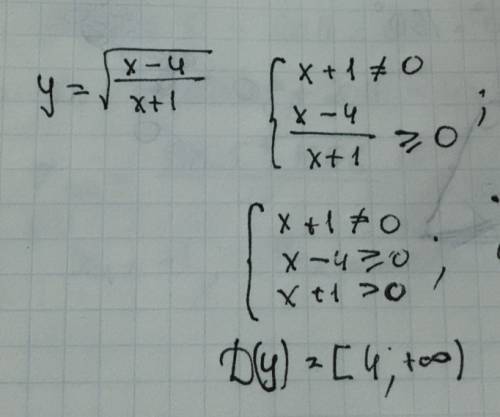 y = √((x − 4)/(x + 1))
{ x + 1 ≠ 0
(x − 4)/(x + 1) ≥ 0 ;
{ x + 1 ≠ 0
x − 4 ≥ 0 ;
x + 1 > 0
D(y) = [4; +∞)